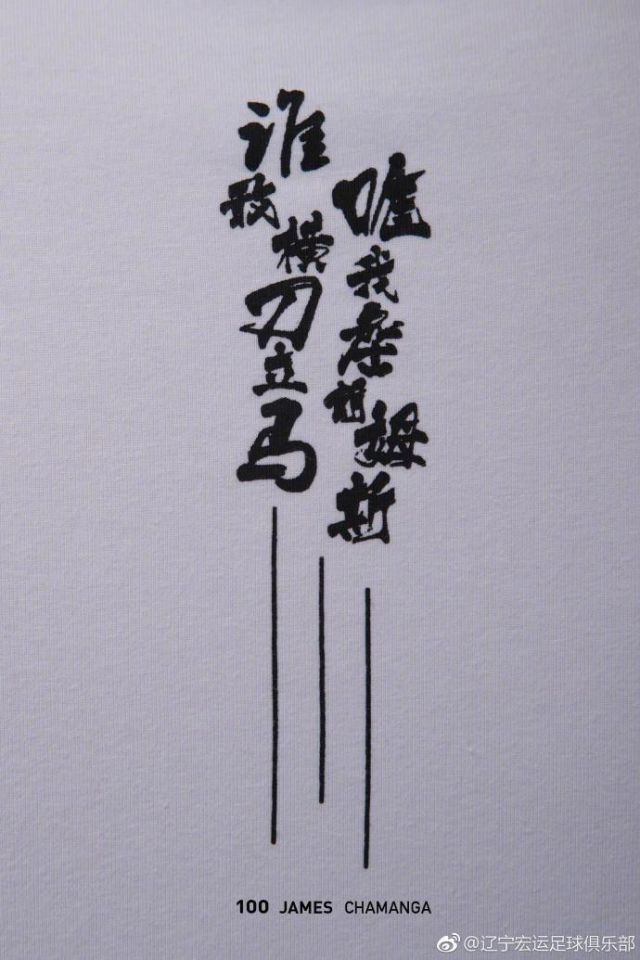 谁敢横刀立马
唯我姆斯
100 JAMES CHAMANGA
@辽宁宏运足球俱乐部